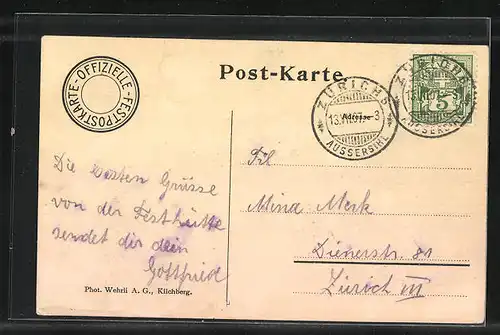 OFFIZIELLE-FESTPOSTKARTE-
Post-Karte.
ZÜRICH 5
13.VII.07.-3
Adresse
AUSSERSIHL
ZÜRICH 5
AUSSERSIHL
5
Die besten Grüsse
von der Festhütte
sendet dir dein
Gottfried
Phot. Wehrli A. G., Kilchberg.
Frl.
Mina Merk
Dienerstr. 81
Zürich III